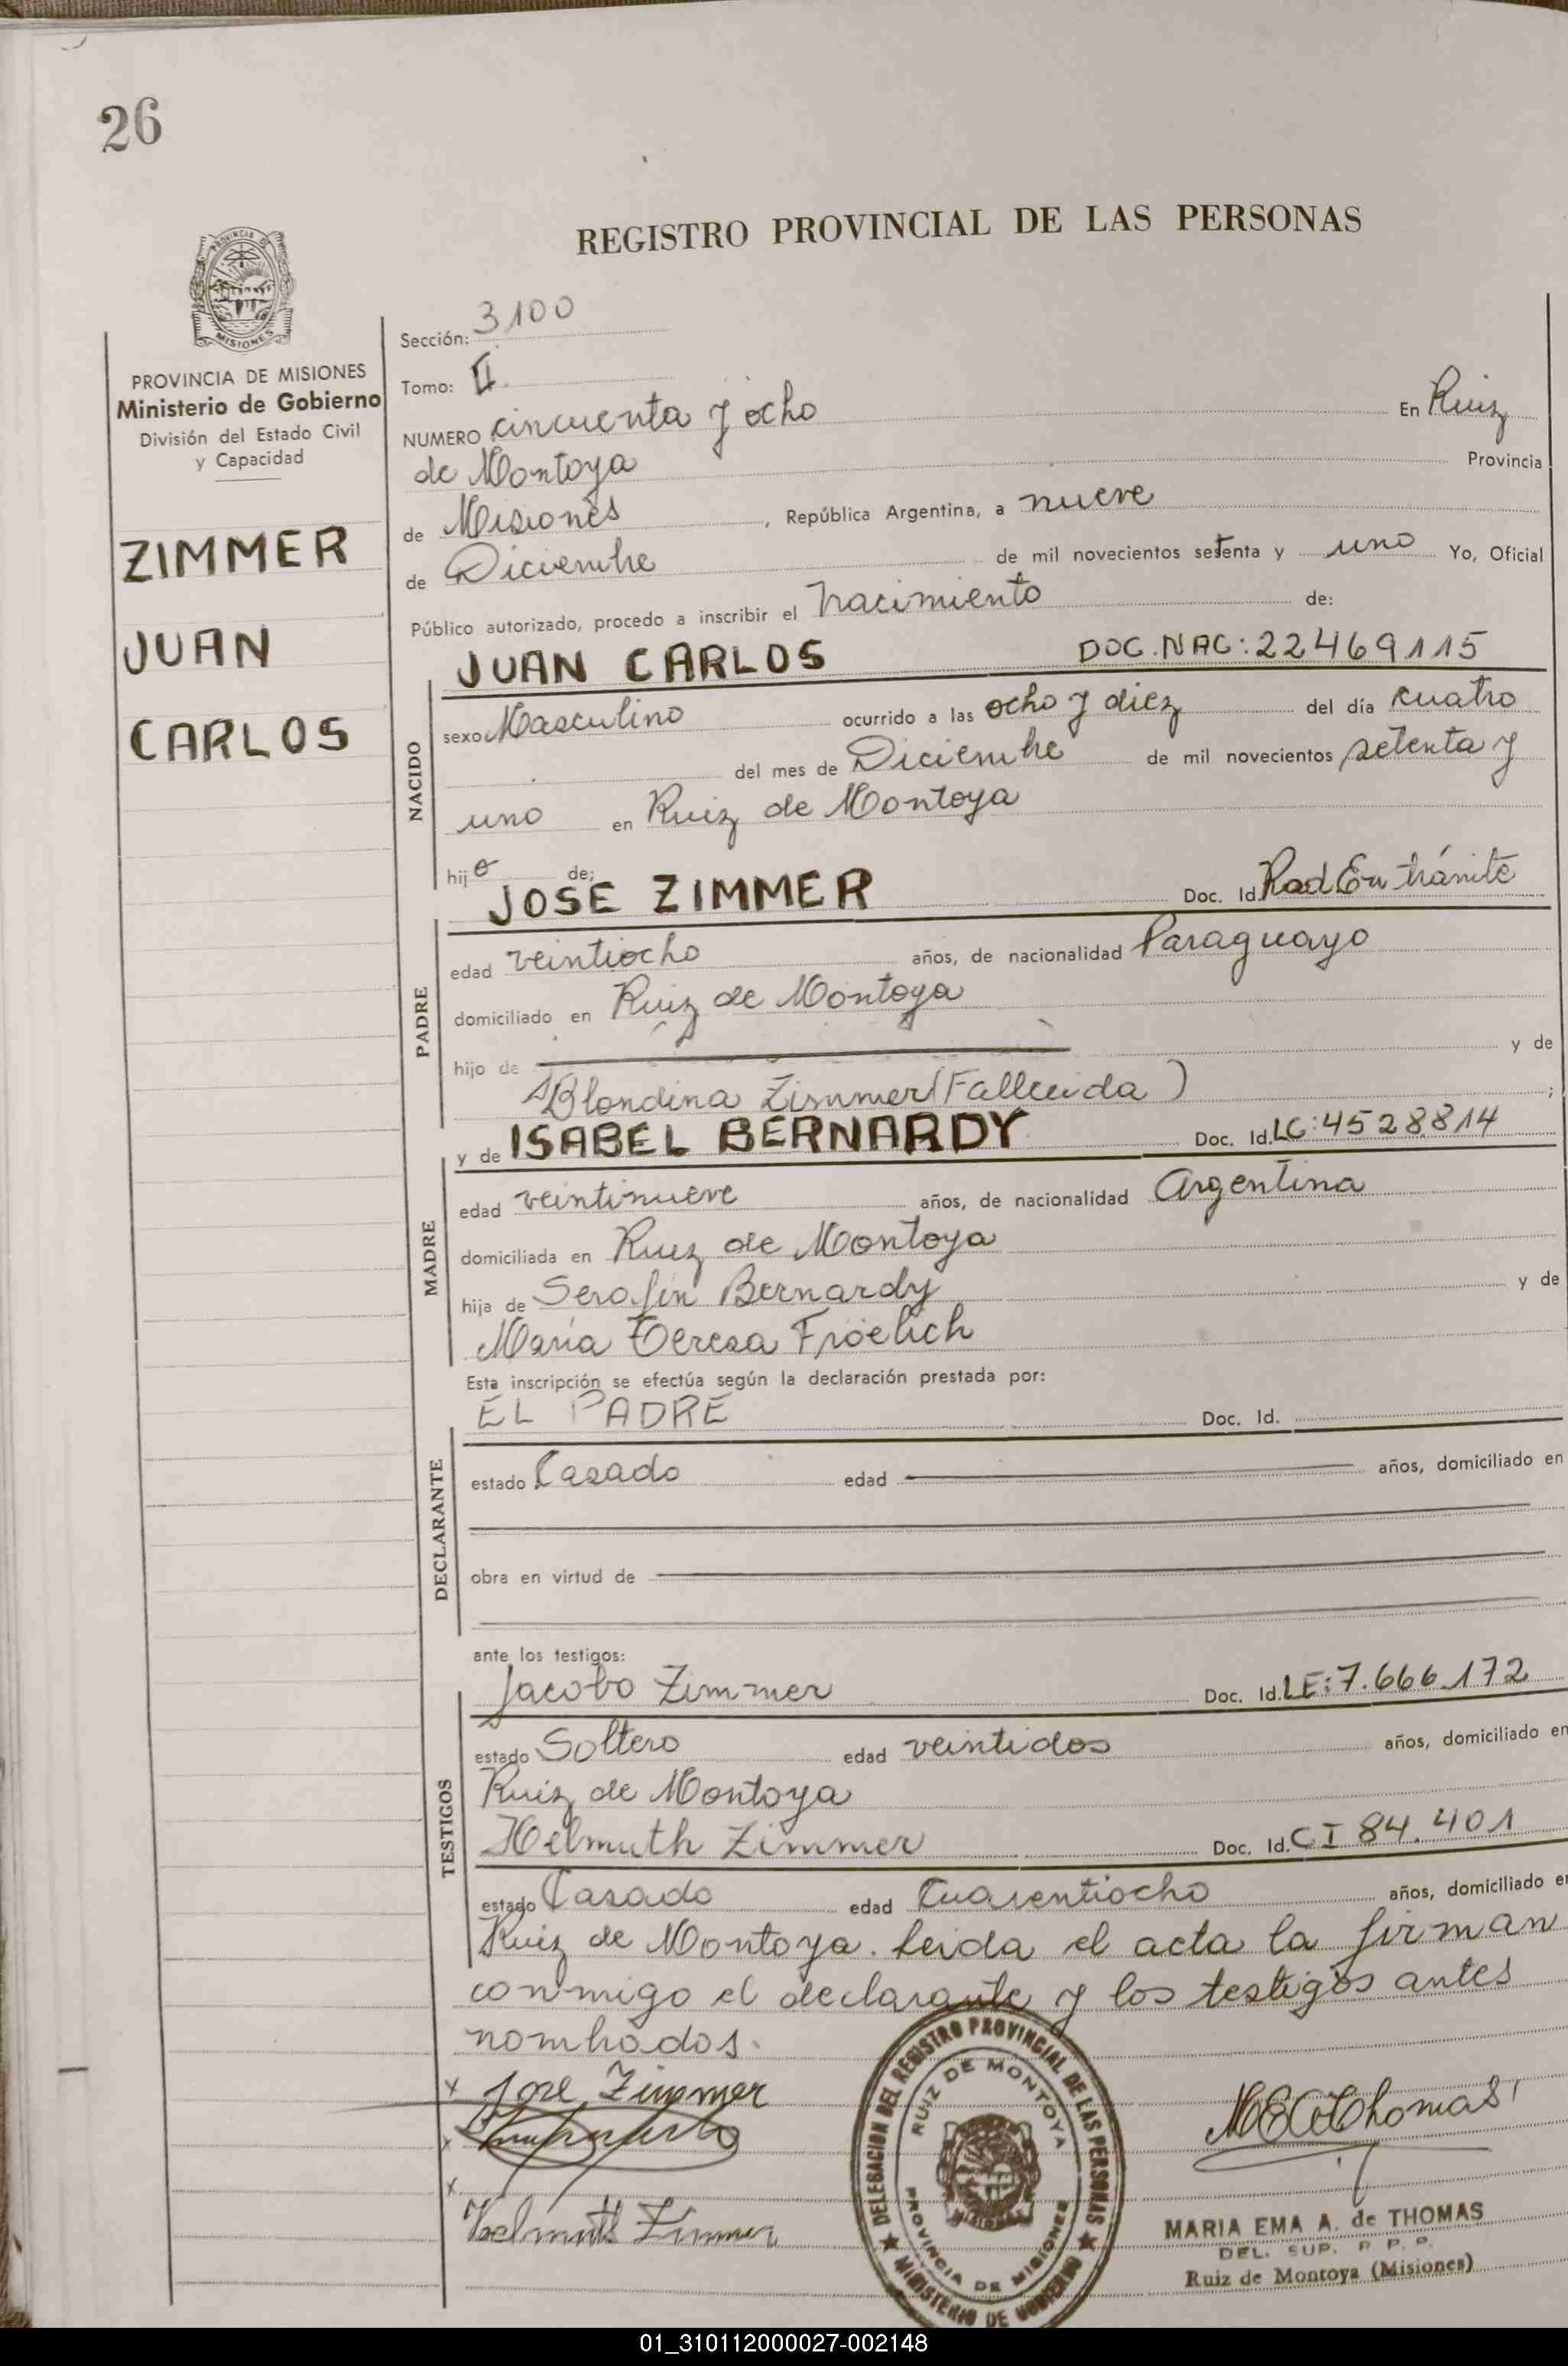 26
REGISTRO PROVINCIAL DE LAS PERSONAS
MISIONES
PROVINCIA DE MISIONES
Ministerio de Gobierno
División del Estado Civil
y Capacidad
ZIMMER
JUAN
CARLOS
Sección: 3100
Tomo: II.
NUMERO cincuenta y ocho En Ruiz
de Montoya Provincia
de Misiones, República Argentina, a nueve
de Diciembre de mil novecientos setenta y uno Yo, Oficial
Público autorizado, procedo a inscribir el Nacimiento de:
JUAN CARLOS DOC.NAC:22469115
NACIDO
sexo Masculino ocurrido a las ocho y diez del día cuatro
del mes de Diciembre de mil novecientos setenta y
uno en Ruiz de Montoya
hijo de;
JOSE ZIMMER Doc. Id. Rad En trámite
PADRE
edad veintiocho años, de nacionalidad Paraguayo
domiciliado en Ruiz de Montoya
hijo de y de
Blondina Zimmer (Fallecida) ;
y de ISABEL BERNARDY Doc. Id. LC:4528.814
MADRE
edad veintinueve años, de nacionalidad Argentina
domiciliada en Ruiz de Montoya
hija de Serafin Bernardy y de
María Teresa Froelich
Esta inscripción se efectúa según la declaración prestada por:
EL PADRE Doc. Id.
DECLARANTE
estado Casado edad años, domiciliado en
obra en virtud de
ante los testigos:
Jacobo Zimmer Doc. Id. LE:7.666.172
TESTIGOS
estado Soltero edad veintidos años, domiciliado en
Ruiz de Montoya
Helmuth Zimmer Doc. Id. CI 84.401
estado Casado edad Cuarentiocho años, domiciliado en
Ruiz de Montoya. Leida el acta la firman
conmigo el declarante y los testigos antes
nombados.
x José Zimmer
x
x
Helmuth Zimmer
DELEGACION DEL REGISTRO PROVINCIAL DE LAS PERSONAS
RUIZ DE MONTOYA
PROVINCIA DE MISIONES
MINISTERIO DE GOBIERNO
MARIA EMA A. de THOMAS
DEL. SUP. R. P. P.
Ruiz de Montoya (Misiones)
01_310112000027-002148